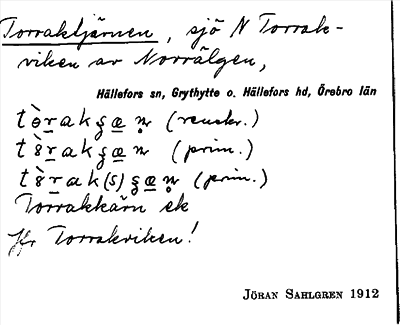 Torraktjärnen, sjö N Torrak-
viken av Norrälgen,
Hällefors sn, Grythytte o. Hällefors hd, Örebro län
(renskr.)
(prim.)
(prim.)
Torrakkärn ek
Jfr Torrakviken!
JÖRAN SAHLGREN 1912